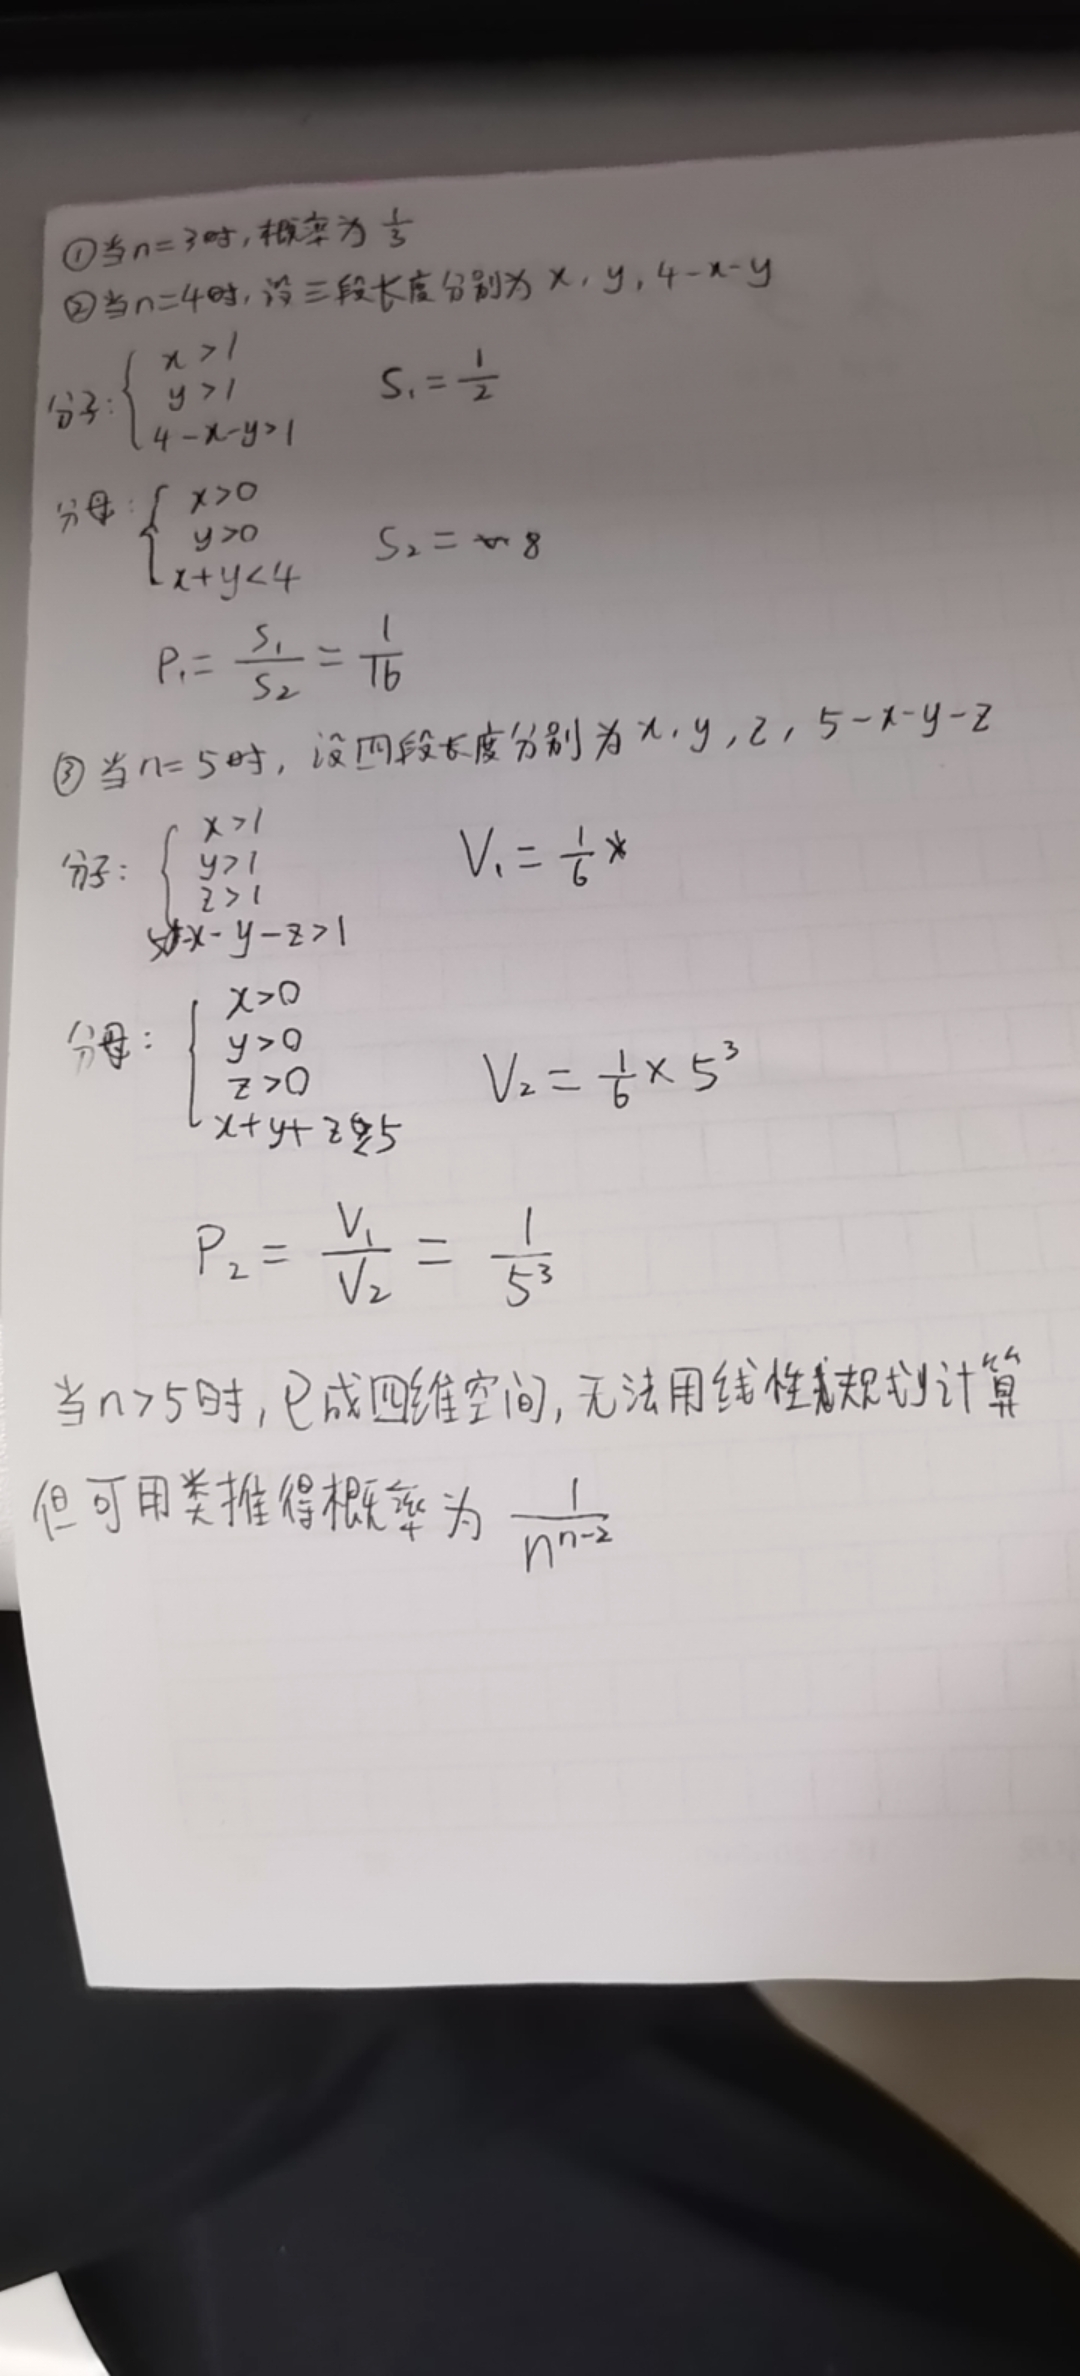 ①当n=3时,概率为1/3
②当n=4时,设三段长度分别为 x, y, 4-x-y
分子: { x>1
y>1
4-x-y>1
S₁=1/2
分母: { x>0
y>0
x+y<4
S₂= 8
P₁= S₁/S₂ = 1/16
③当n=5时, 设四段长度分别为 x, y, z, 5-x-y-z
分子: { x>1
y>1
z>1
5-x-y-z>1
V₁=1/6
分母: { x>0
y>0
z>0
x+y+z<5
V₂=1/6×5³
P₂ = V₁/V₂ = 1/5³
当n>5时,已成四维空间,无法用线性规划计算
但可用类推得概率为 1/nⁿ⁻²